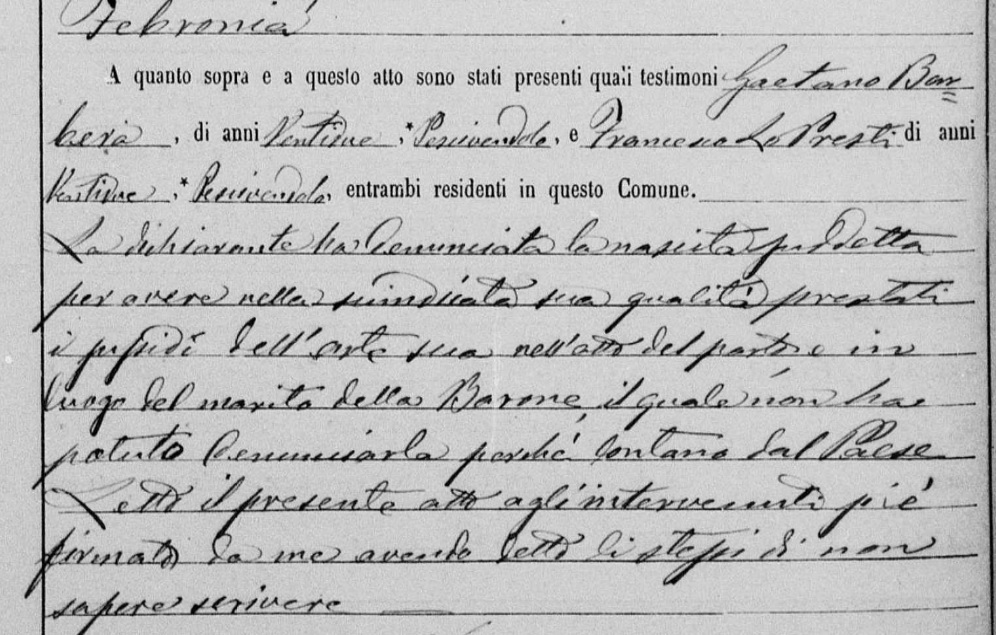 Febronia
A quanto sopra e a questo atto sono stati presenti quali testimoni Gaetano Bar=
bera, di anni Ventidue, * Pescivendolo, e Francesco Lo Presti di anni
Ventidue, * Pescivendolo, entrambi residenti in questo Comune.
La dichiarante ha denunciata la nascita suddetta
per avere nella suindicata sua qualità prestati
i sussidi dell'arte sua nell'atto del parto e in
luogo del marito della Barone, il quale non ha
potuto denunciarla perché lontano dal Paese
Letto il presente atto agli intervenuti si è
firmato da me avendo detto li stessi di non
sapere scrivere